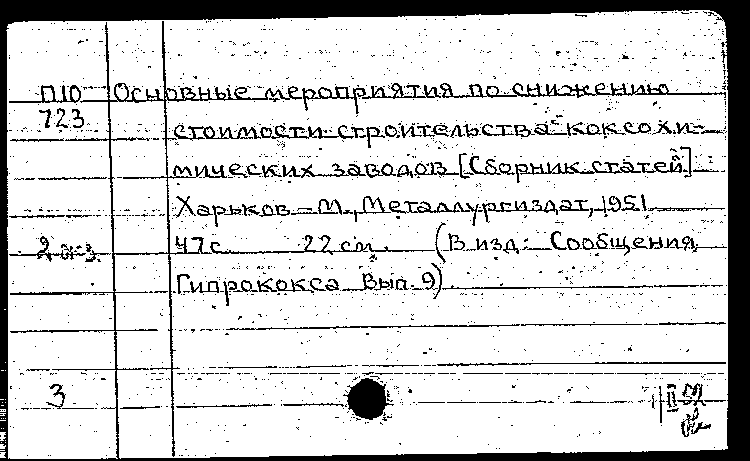 П10 Основные мероприятия по снижению
723
стоимости строительства коксохи-
мических заводов [Сборник статей]
Харьков - М., Металлургиздат, 1951
2 экз. 47 с. 22 см. (В изд: Сообщения
Гипрококса Вып. 9)
3
II 52